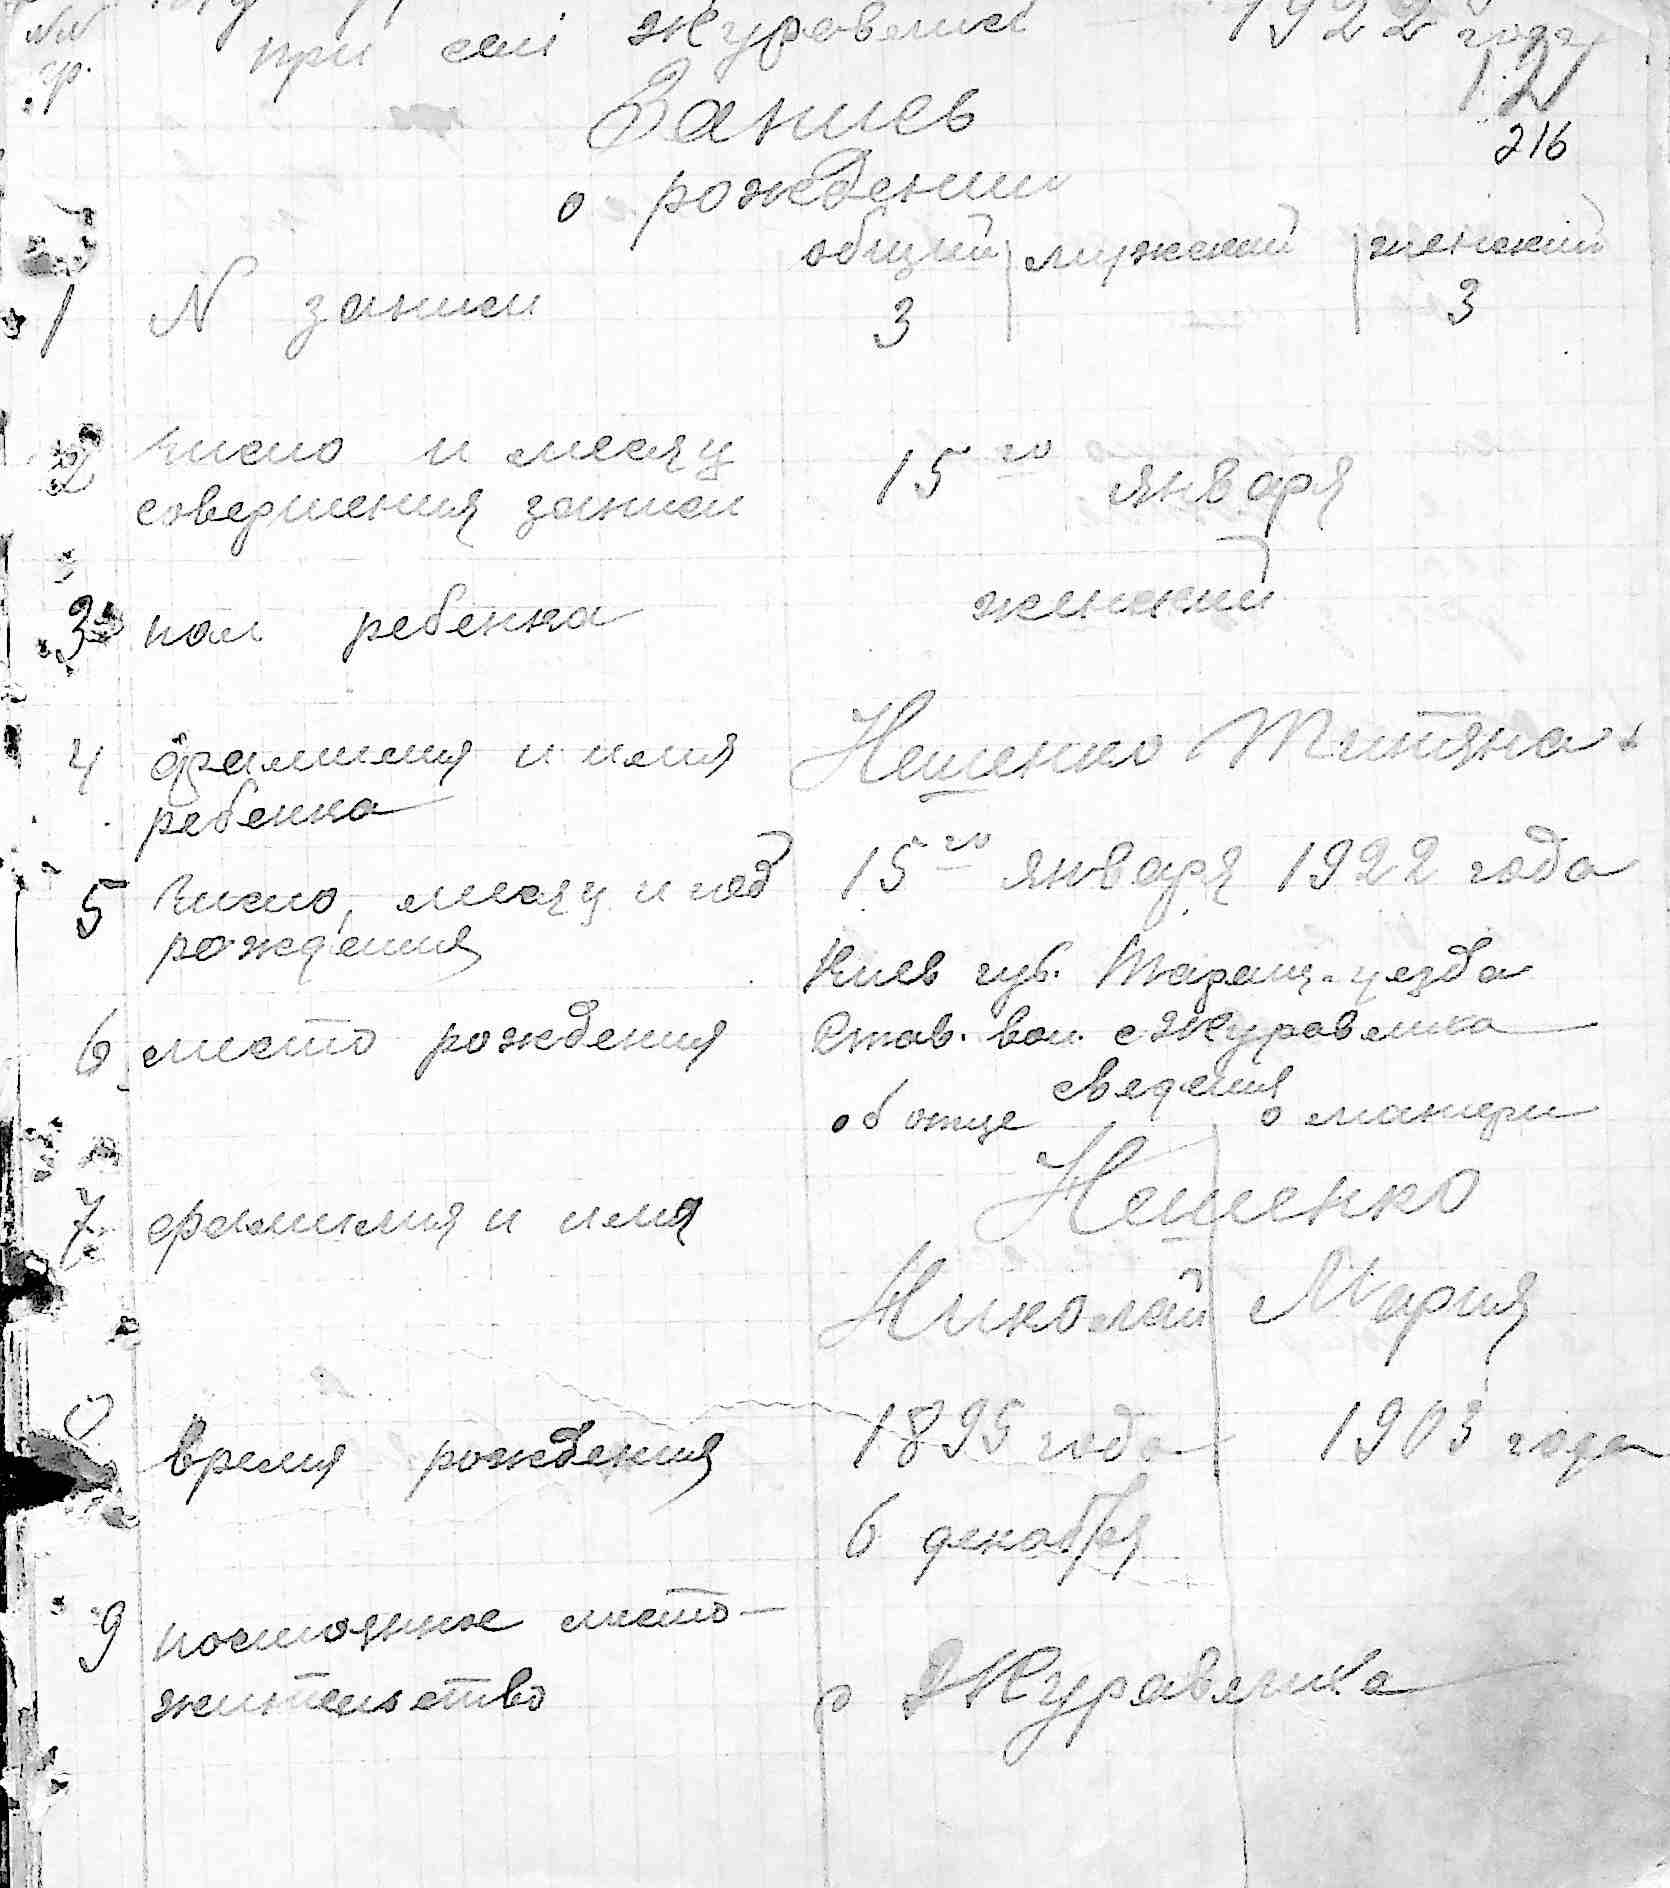 NN при селі Журавлисі 1922 году
гр. 12
Запись 216
о рождении
общий мужской женский
1 N записи 3 3
2 число и месяц 15го января
совершения записи
3 пол ребенка женский
4 фамилия и имя Нещенко Титяна
ребенка
5 число, месяц и год 15го января 1922 года
рождения
Киев губ. Таращ. уезда
6 место рождения Став. вол. с Журавлика
сведения
об отце о матери
7 фамилия и имя Нещенко
Николай Мария
время рождения 1895 года 1903 года
6 декабря
9 постоянное место-
жительство с Журавлика